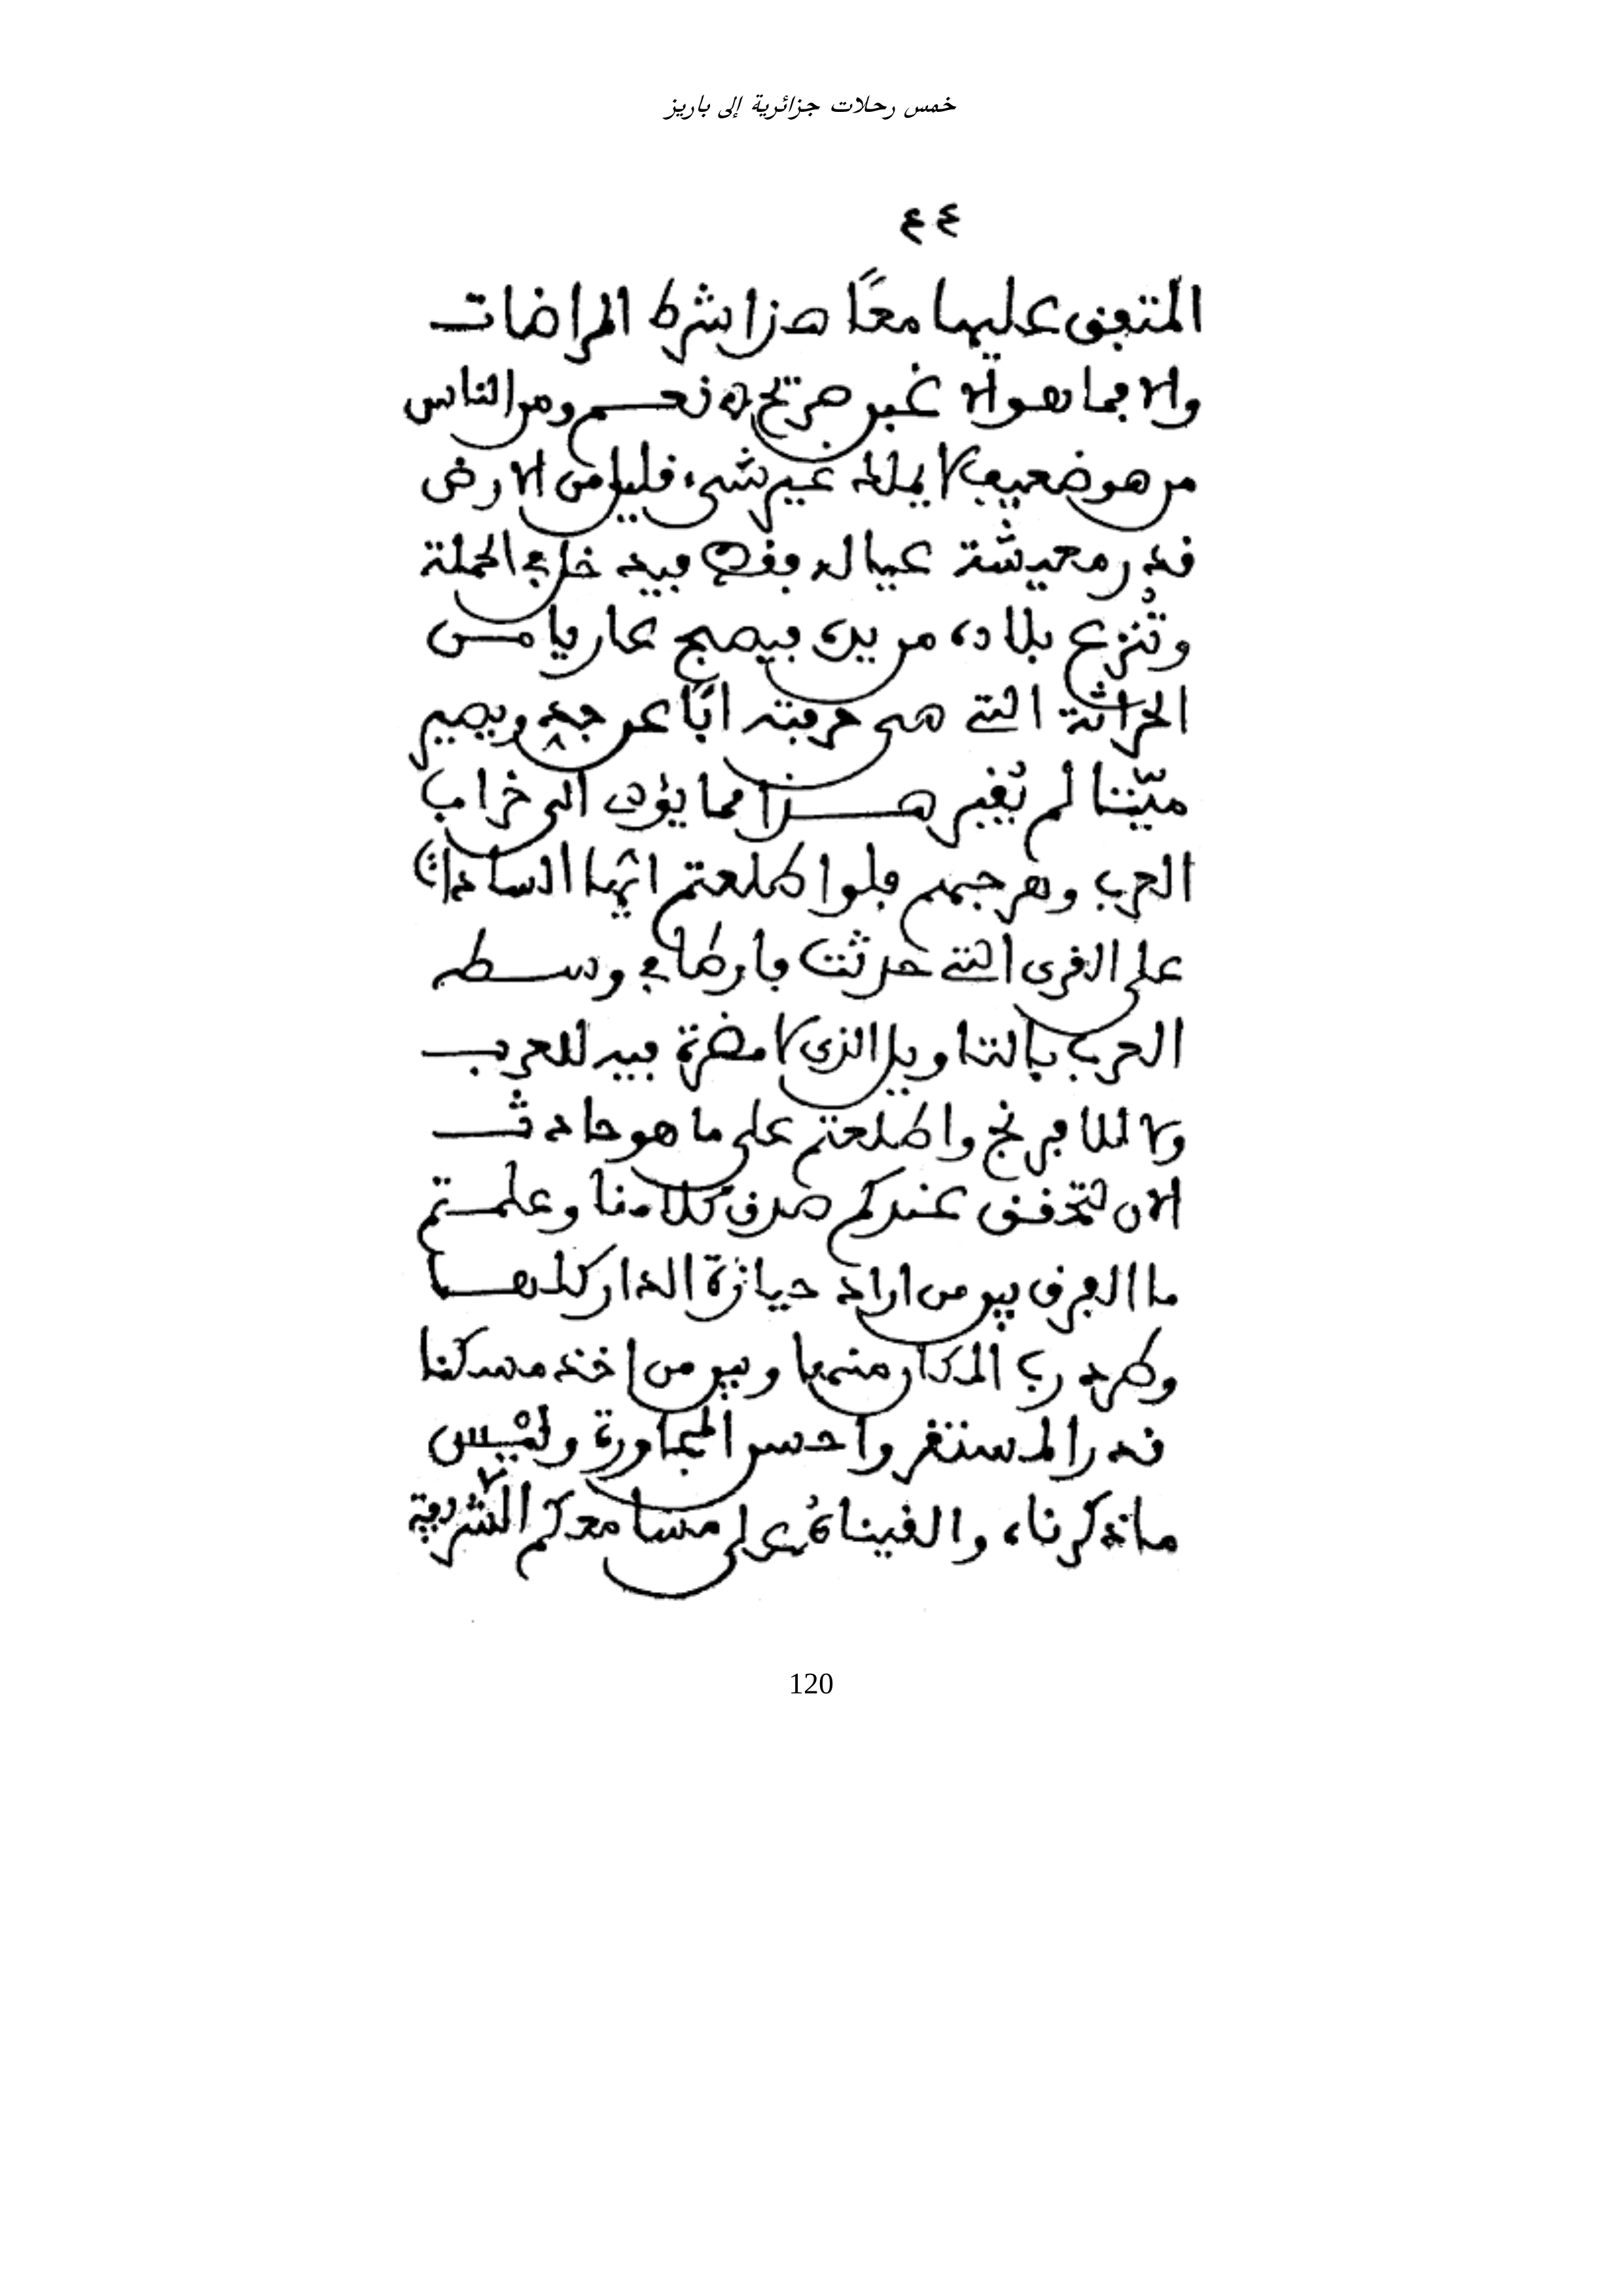 خمس رحلات جزائرية إلى باريز
٤٤
المتفق عليها معًا هذا شرط المراضات
والا فما هو الّا غبن صريح نعم ومن الناس
من هو ضعيف لا يملك غير شىء قليل من الارض
قدر معيشة عياله فقط فيه خارج الجملة
وتُنزع بلاده من يده فيصبح عاريا من
الحراثة التى هى حرفته ابًا عن جد ويصير
ميّتنا لم يُقبر هذا مما يؤدى الى خراب
العرب وهرجهم فلو اطلعتم ايّها السادات
على القرى التى حدثت بارضا فى وسط
العرب بالتناويل الذى لا مضرة فيه للعرب
ولا للافرنج واطلعتم على ما هو حادث
الان لتحقق عندكم صدق كلامنا وعلمتم
ما الفرق بين من اراد حيازة الدار كلها
وطرد رب الدار منها وبين من اخذ مسكنا
قدر المستقر واحسن المجاورة ولَيْس
ما ذكرناه والقيناهُ على مسامعكم الشريفة
120